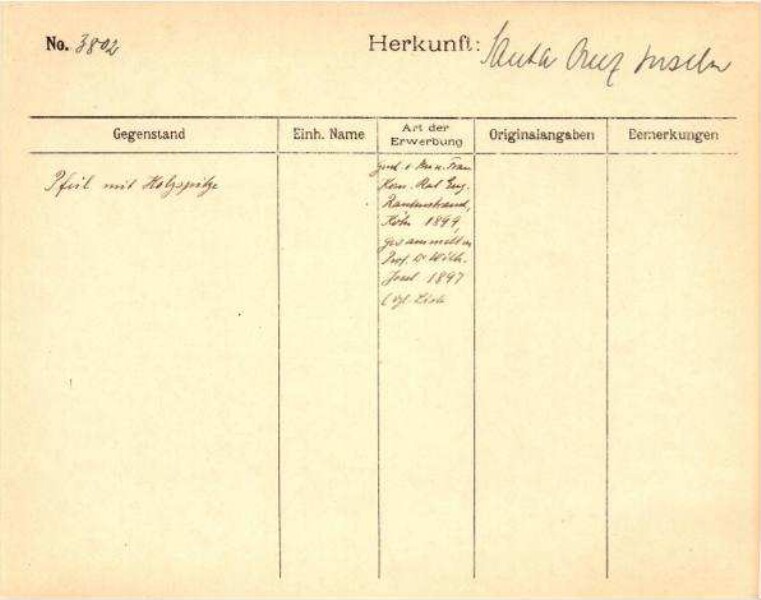 No. 3802
Herkunft: Santa Cruz Inseln
Gegenstand
Einh. Name
Art der
Erwerbung
Originalangaben
Bemerkungen
Pfeil mit Holzspitze
Frau
Kom. Rat Eug.
Rautenstrauch,
Köln 1899,
gesammelt v.
Prof. Dr Wilh.
Joest 1897
(vgl. Liste